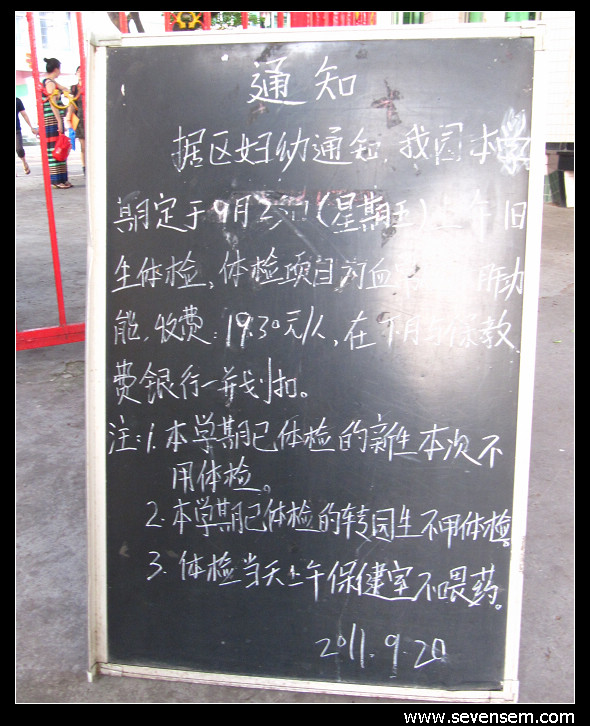 通知
据区妇幼通知,我园本学
期定于9月23日(星期五)上午旧
生体检,体检项目为血 肝功
能,收费:19.30元/人,在下月 保教
费银行一并划扣。
注:1.本学期已体检的新生本次不
用体检。
2.本学期已体检的转园生不用体检。
3.体检当天上午保健室不喂药。
2011.9.20
www.sevensem.com